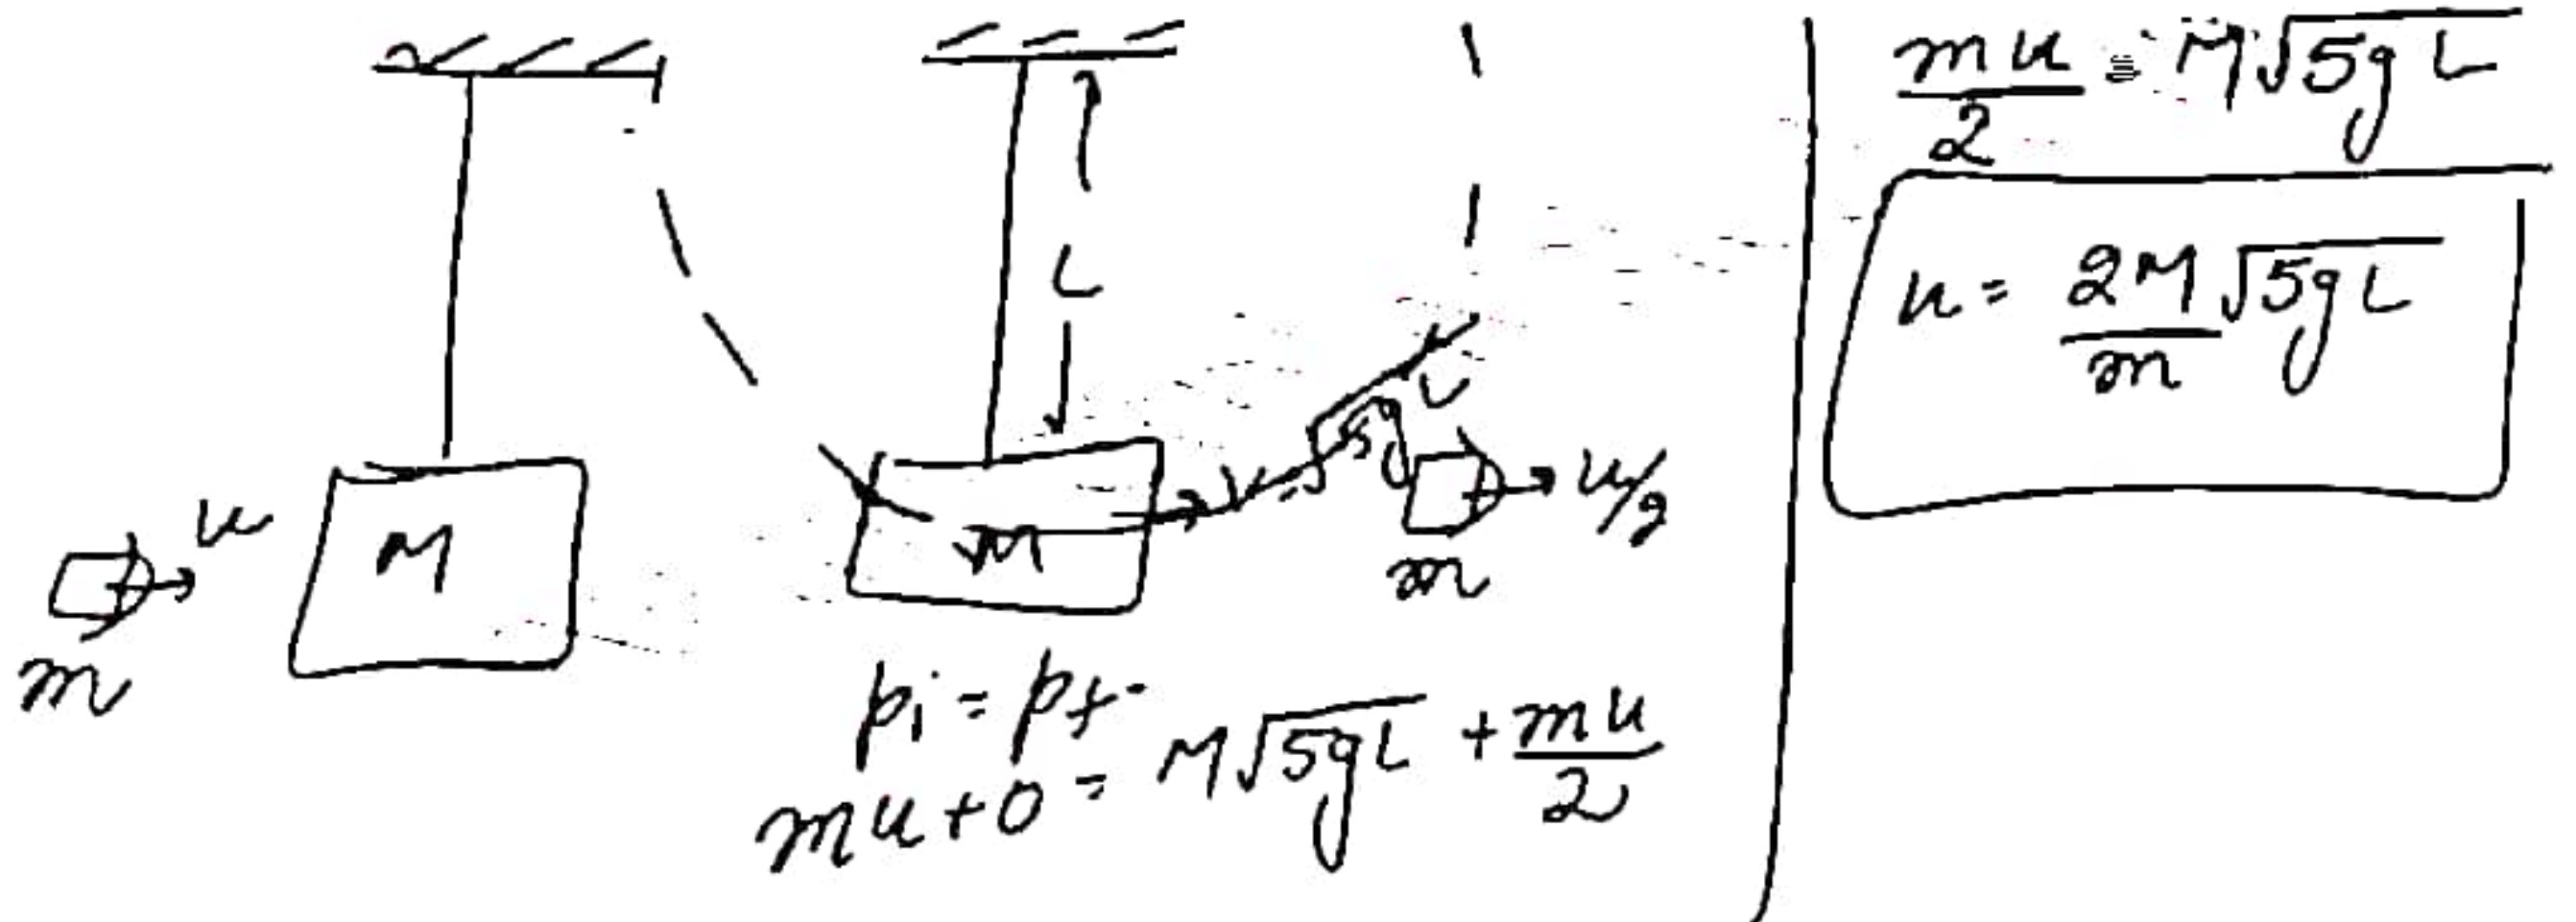 u
M
m
L
M
v = √5gL
u/2
m
pi = pf
mu + 0 = M√5gL + mu/2
mu/2 = M√5gL
u = 2M/m √5gL